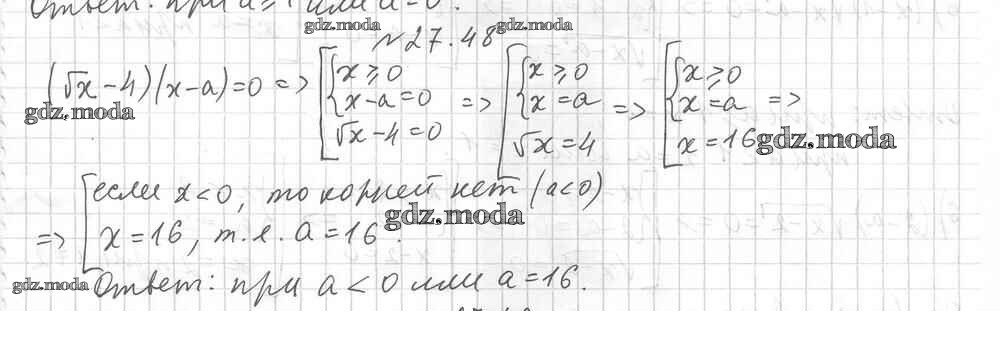 Ответ: при a ≥ 1 или a = 0.
gdz.moda gdz.moda
№27.48
(√x - 4)(x - a) = 0 => [ { x ≥ 0 x - a = 0 √x - 4 = 0 => [ { x ≥ 0 x = a √x = 4 => [ { x ≥ 0 x = a x = 16 =>
gdz.moda gdz.moda
=> [ если x < 0, то корней нет (a < 0)
x = 16, т.е. a = 16.
gdz.moda
gdz.moda
Ответ: при a < 0 или a = 16.